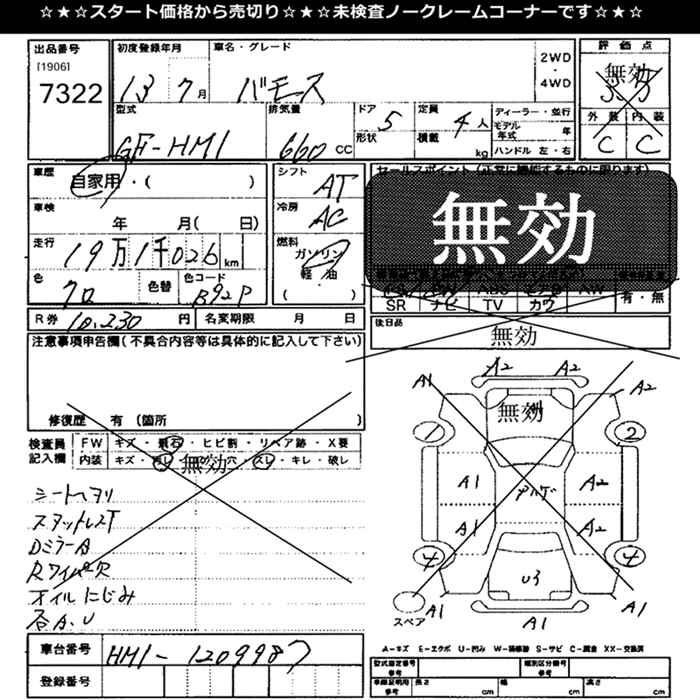 ☆★☆スタート価格から売切り☆★☆未検査ノークレームコーナーです☆★☆
出品番号 初度登録年月 車名・グレード 評価点
[1906] 2WD・4WD 無効
7322 13 7月 バモス
外装 内装
C C
型式 排気量 ドア形状 定員積載 ディーラー・並行
GF-HM1 660 CC 5 4人 kg モデル年式 年
ハンドル 左・右
車歴 シフト セールスポイント(正常に機能するものに限ります)
自家用・( ) AT
車検 冷房 無効
年 月( 日) AC
走行 燃料
19万1千026km ガソリン
軽・油
( )
色 色替 色コード
クロ B92P
SR ナビ TV カワ 有・無
R券 10,230円 名変期限 月 日 後日品
無効
注意事項申告欄(不具合内容等は具体的に記入して下さい)
修復歴 有 (箇所 )
検査員記入欄 FW キズ・飛石・ヒビ割・リペア跡・X要
内装 キズ・汚レ・穴・スレ・キレ・破レ
無効
シートヘタリ
スタットレスT
DミラーA
Rワイパー欠
オイルにじみ
各A.U
A1 A2 A2 A2
無効
1 2
A1 アルゲ A2
A1 A2
4 4
U3
スペア A1 A1 A1
A-キズ E-エクボ U-凹み W-補修跡 S-サビ C-腐食 XX-交換済
車台番号 HM1-1209987
登録番号
型式指定番号 参考 類別区分番号 参考
車検証明用 参考 長さ cm 幅 cm 高さ cm